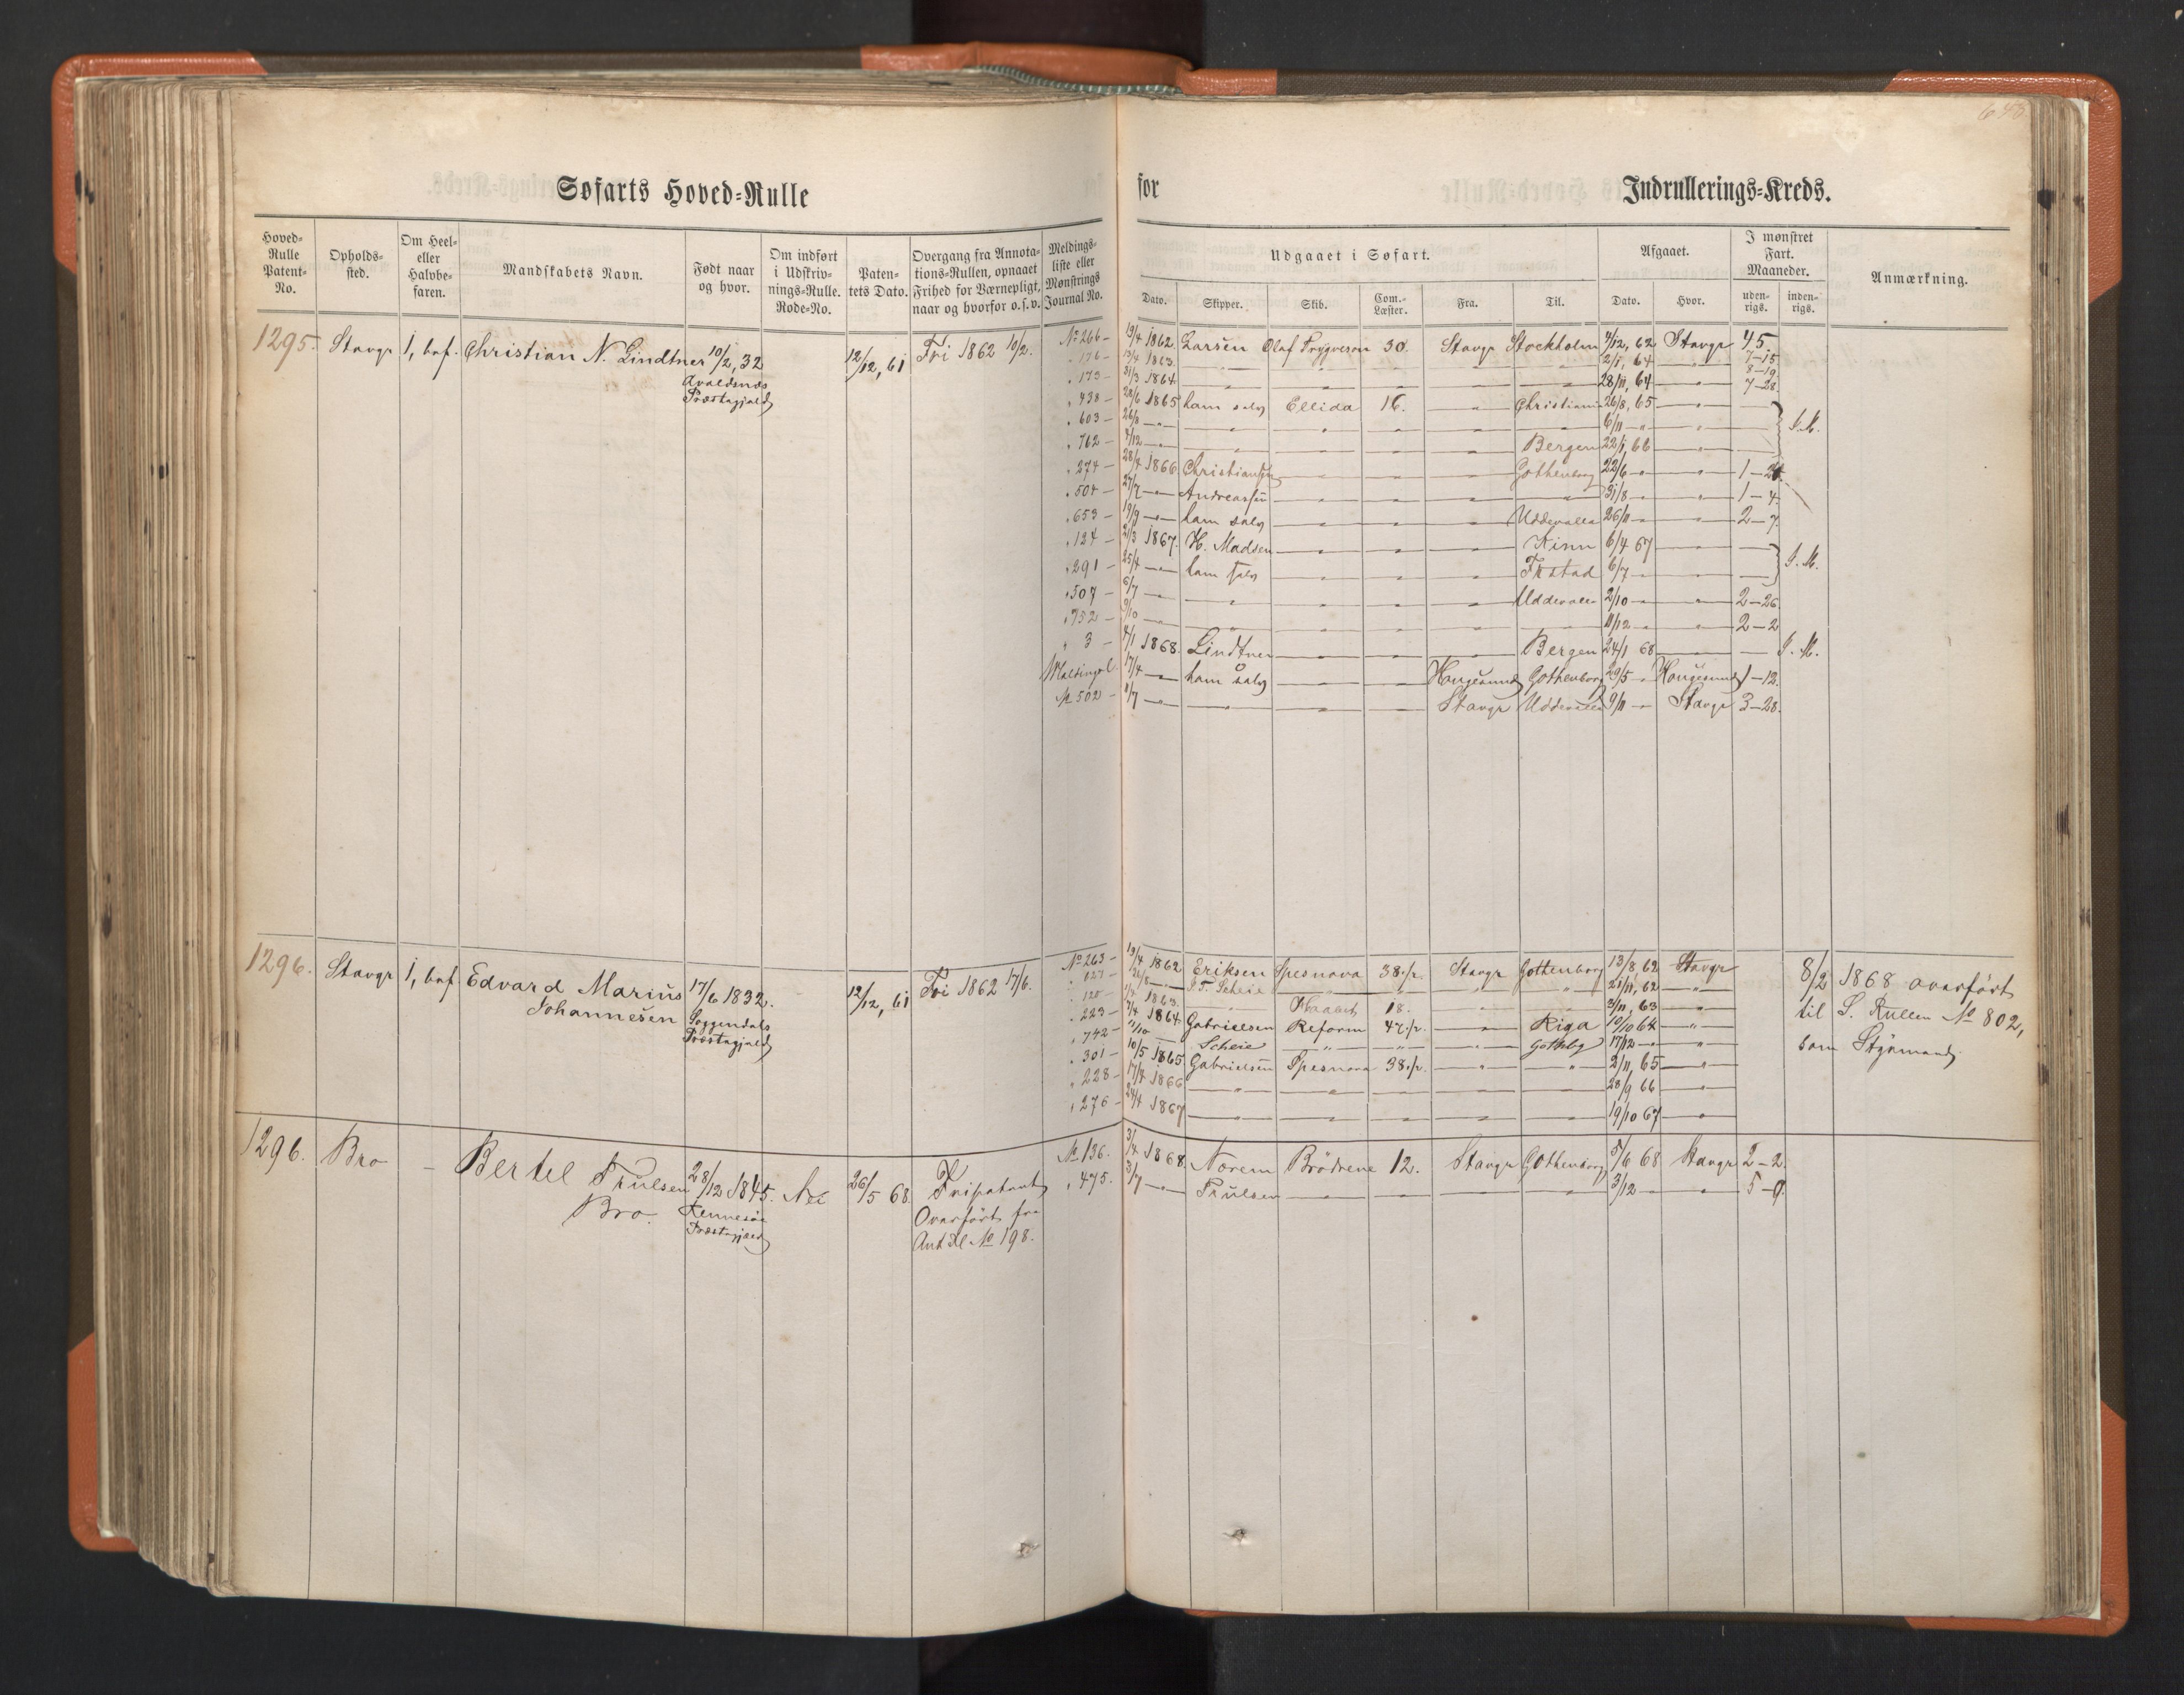 Søfarts Hoved-Rulle for Indrullerings-Kreds.
Hoved-Rulle Patent-No. Opholds-sted. Om Heel- eller Halvbe-faren. Mandskabets Navn. Født naar og hvor. Om indført i Udskriv-nings-Rulle. Rode-No. Paten-tets Dato. Overgang fra Annota-tions-Rullen, opnaaet Frihed for Værnepligt, naar og hvorfor o.s.v. Meldings-liste eller Mønstrings Journal No.
Udgaaet i Søfart. Afgaaet. I mønstret Fart. Maaneder. Anmærkning.
Dato. Skipper. Skib. Com.-Læster. Fra. Til. Dato. Hvor. uden-rigs. inden-rigs.
1295. Stavgr 1, bef. Christian N. Lindtner 10/2, 32 12/12, 61 Fri 1862 10/2. No 266 – 19/4 1862. Larsen Olaf Trygveson 30. Stavgr Stockholm 4/12, 62 Stavgr 45.
Avaldsnæs „ 176 – 13/4 1863. – „ – 2/1, 64 – „ – 7–15
Præstegjeld „ 173 – 31/3 1864. – „ – 28/11, 64 – „ – 7–28.
„ 438 – 28/6 1865 ham selv Ellida 16. – „ – Christiania 26/8, 65 – „ –
„ 603 – 26/8 – „ – 6/11 – „ – S.M.
„ 762 – 4/12 – „ – Bergen 22/1, 66 – „ –
„ 274 – 28/4 1866 Christiansen – „ – Gothenborg 22/6 – „ – 1–24
„ 504 – 27/7 – „ – Andreassen – „ – 31/8 – „ – 1–4.
„ 653 – 19/9 – „ – ham selv – „ – Uddevalla 26/11 – „ – 2–7.
„ 124 – 21/3 1867. H. Madsen – „ – Kinn 6/4 67 – „ –
„ 291 – 25/4 – „ – ham selv – „ – Frstad 6/7 – „ – S.M.
„ 507 – 6/7 – „ – Uddevalla 2/10 – „ – 2–26.
„ 752 – 9/10 – „ – 11/12 – „ – 2–2
„ 3 – 4/1 1868. Lindtner – „ – Bergen 24/1 68 – S.M.
Meldingsl. 17/4 – „ – ham selv – „ – Haugesund Gothenborg 29/5 – „ Haugesund 1–12.
No 502 – 1/7 – „ – Stavgr Uddevalla 9/11 – „ Stavgr 3–28.
1296. Stavgr 1, bef. Edvard Marius 17/6 1832. 12/12, 61 Fri 1862 17/6. No 263 – 19/4 1862 Eriksen Spesnova 38 1/2. Stavgr Gottenborg 13/8, 62 Stavgr 8/2 1868 overført
Johannesen Soggendals S. T. Scheie – „ – 21/11, 62 „ til S. Rullen No 802,
Præstegjeld 1863. Haabet 18. 3/11, 63 „ som Styrmand.
„ 223 – 7/4 1864 Gabrielsen Reform 47 1/2. „ Riga 10/10 64 „
„ 742 – 11/10 Scheie „ „ „ Gothbg 17/12 – „
„ 301 – 10/5 1865 Gabrielsen Spesnova 38 1/2. – „ – 2/11, 65 – „ –
„ 228 – 17/4 1866 – „ – 28/9 66 – „ –
„ 276 – 24/4 1867 – „ – 19/10 67 – „ –
1296. Bro – Bertel Trulsen 28/12 1845. Nei 26/5 68 Fripatent No 136. 3/4 1868. Norem Brødrene 12. Stavgr Gothenborg 5/6 68 Stavgr 2–2.
Bro. Rennesøe Overført fra „ 475. 3/7 – „ – Trulsen – „ – 3/12 – „ – 5–0.
Præstegjeld Ant Rl No 198.